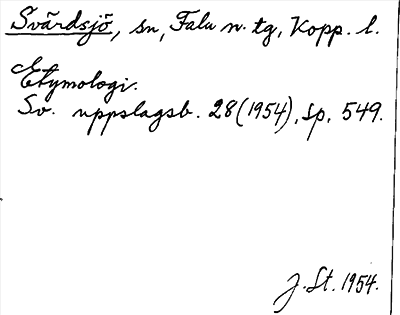 Svärdsjö, sn, Falu n. tg, Kopp. l.
Etymologi.
Sv. uppslagsb. 28 (1954), sp. 549.
J. St. 1954.